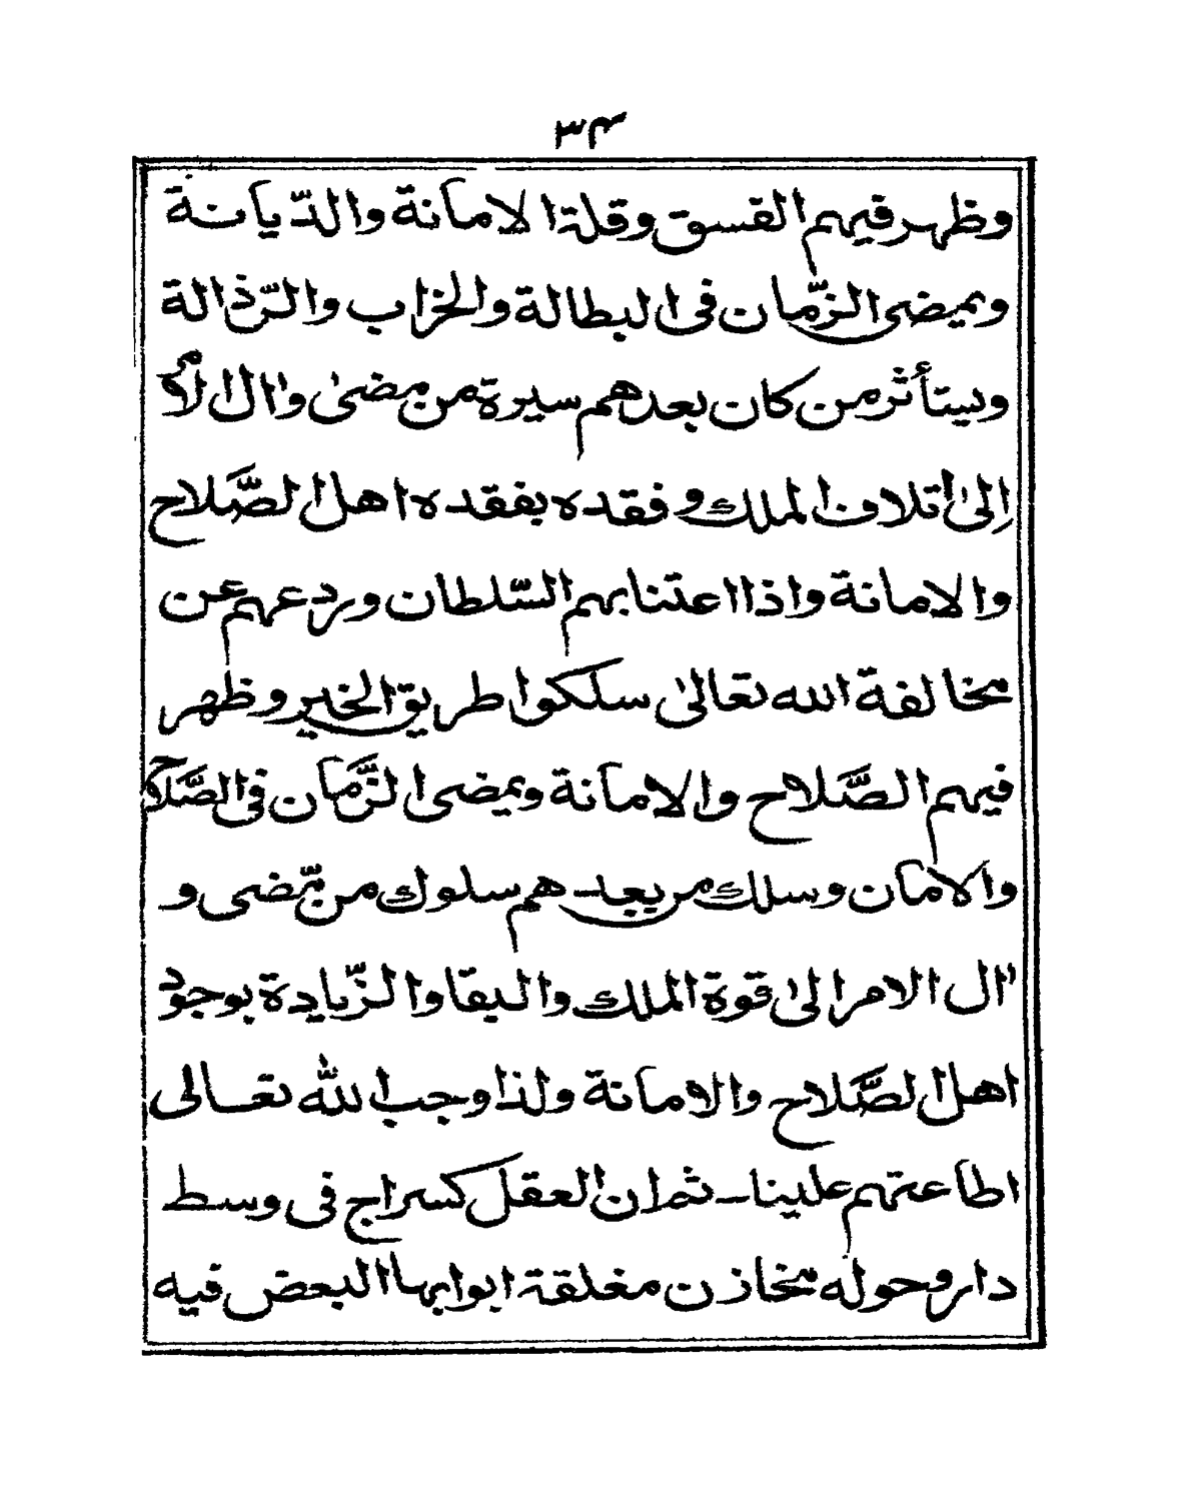 ٣٤
وظهر فيهم الفسق وقلة الامانة والدّيانة
ويمضى الزّمان فى البطالة والخراب والرّذالة
ويستأثر من كان بعدهم سيرة من مضىٰ واٰل الامر
إلىٰ اتلاف الملك و فقده بفقده اهل الصَّلاح
والامانة واذا اعتنا بهم السّلطان وردعهم عن
مخالفة الله تعالىٰ سلكوا طريق الخير وظهر
فيهم الصَّلاح والامانة ويمضى الزَّمان فى الصَّلاح
والامان وسلك من بعدهم سلوك من مّضى و
اٰل الامر الىٰ قوة الملك والبقا والزّيادة بوجود
اهل الصَّلاح والامانة ولذا وجب الله تعالى
اطاعتهم علينا ـ ثم ان العقل كسراج فى وسط
دار وحوله مخازن مغلقة ابوابها البعض فيه